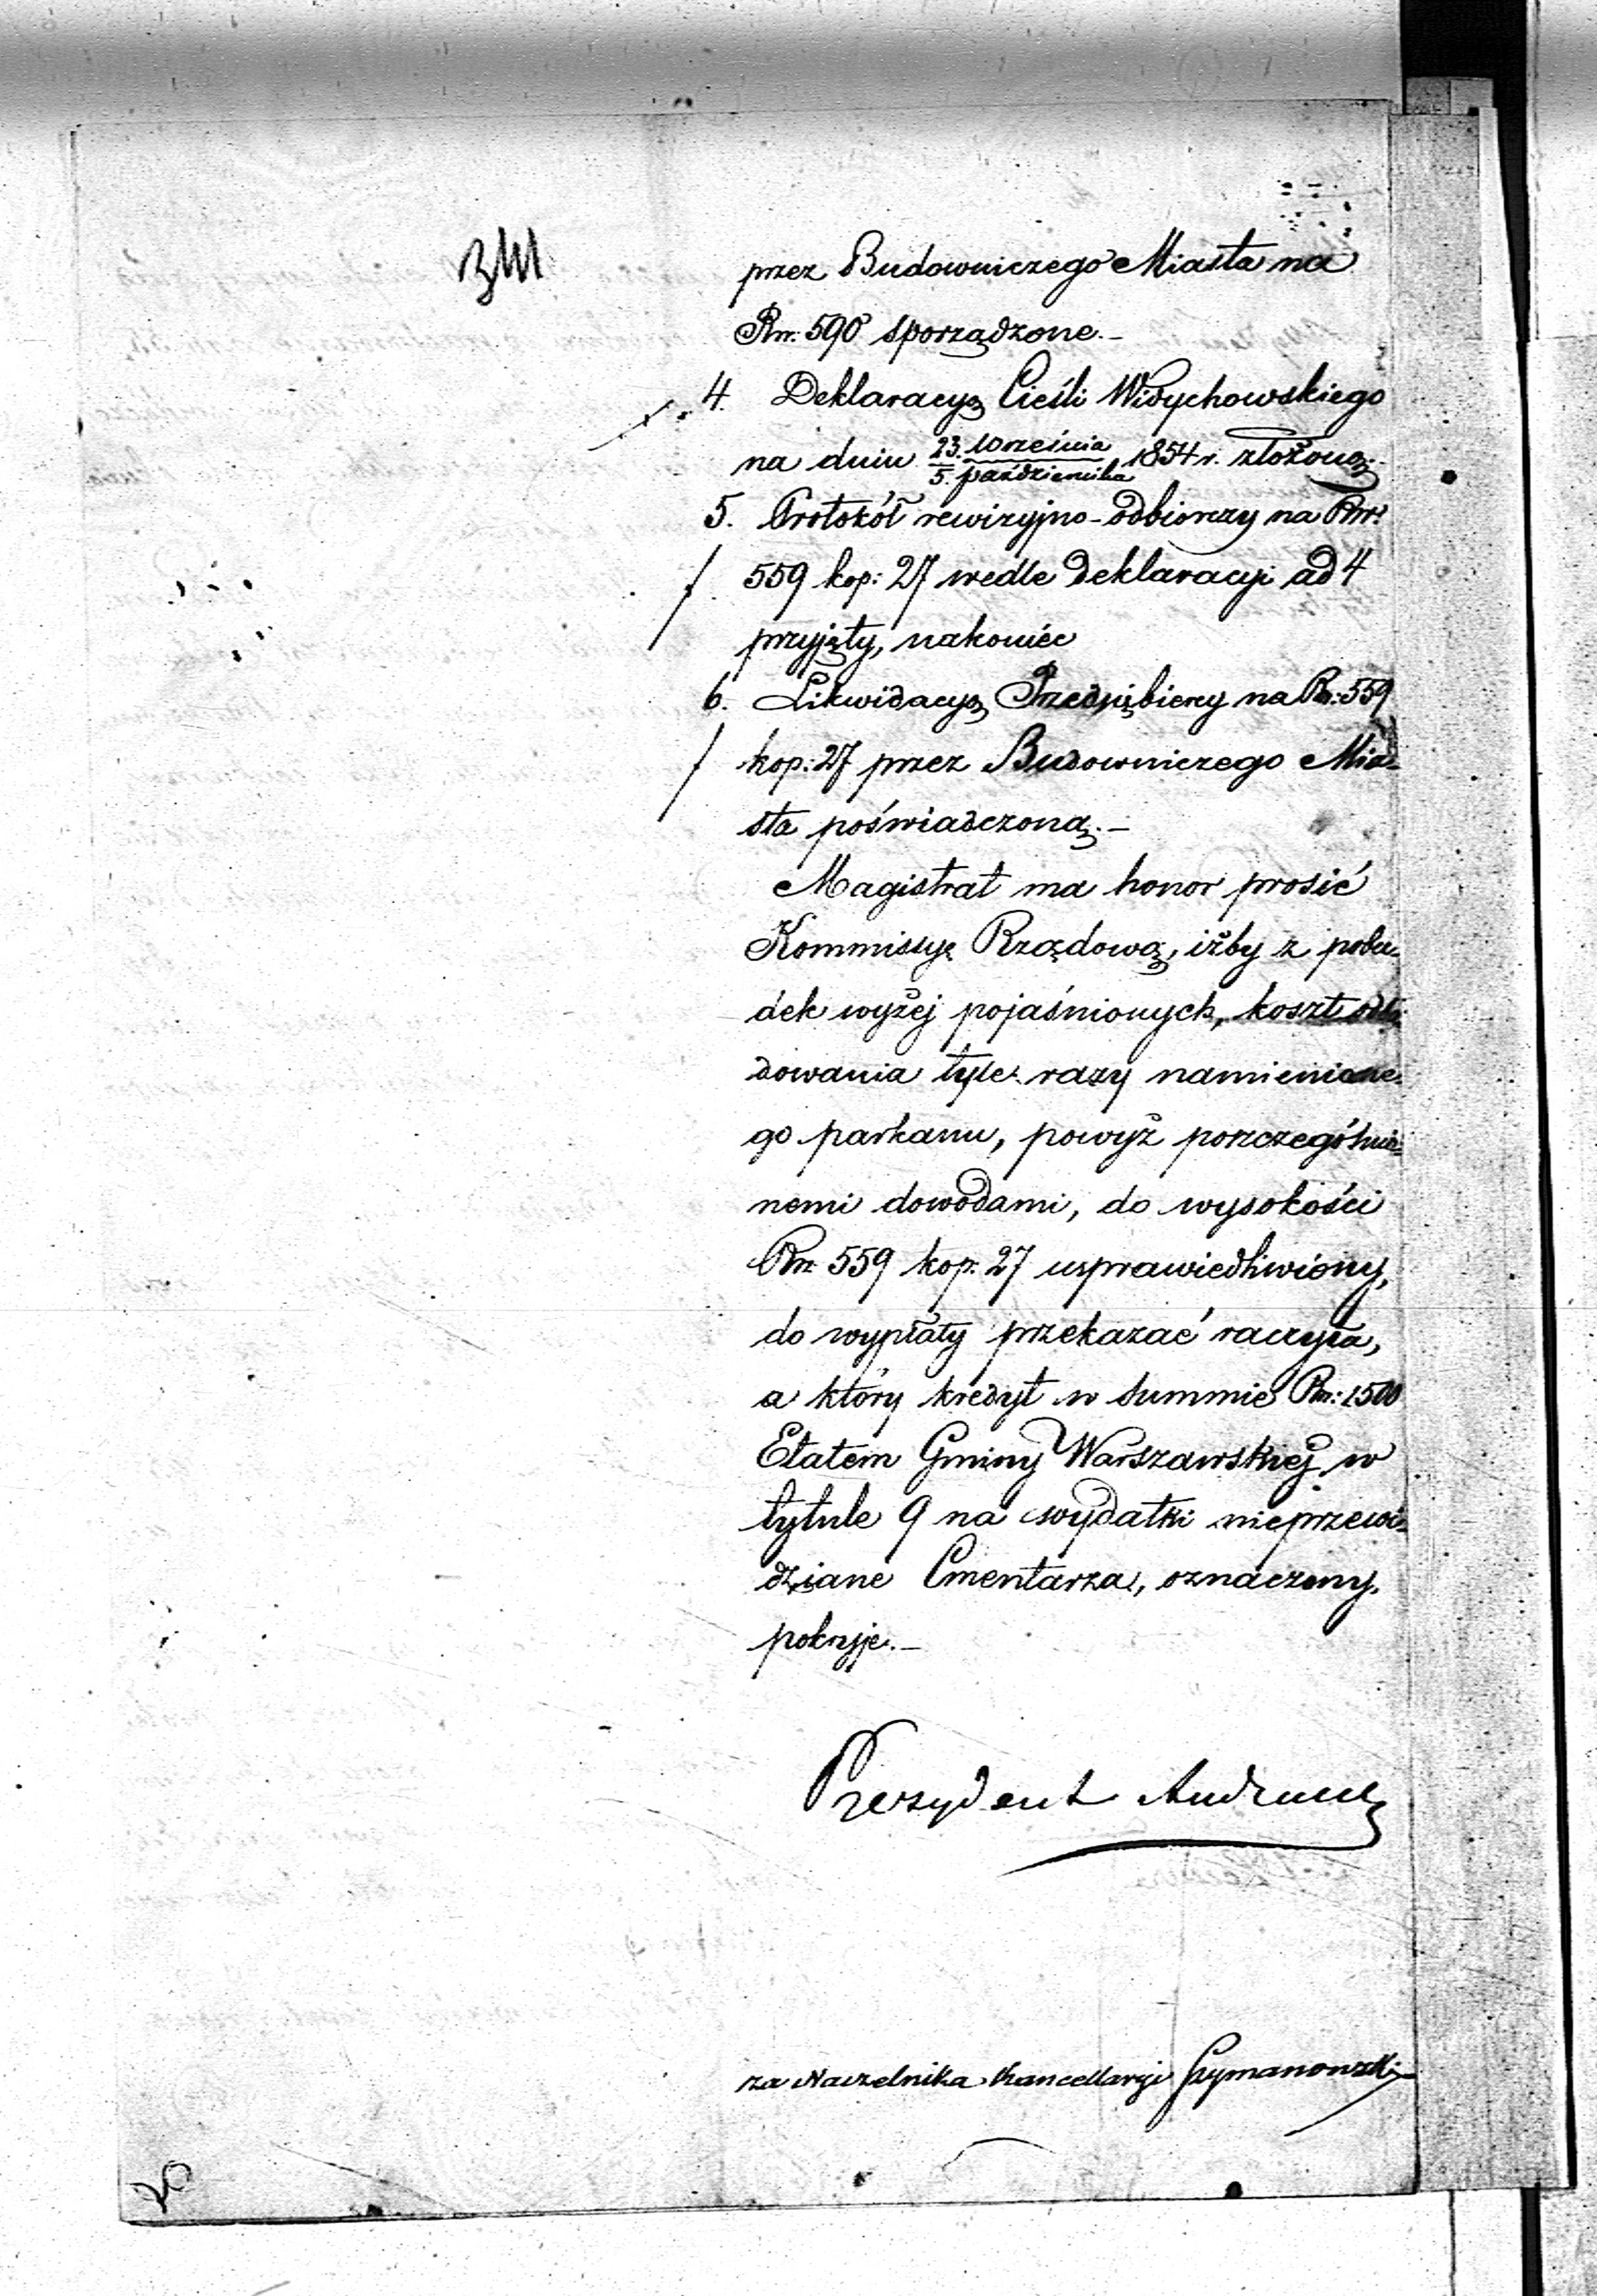 przez Budowniczego Miasta na
Rsr: 590 sporządzone.–
4. Deklaracyą Cieśli Widychowskiego
na dniu 23. Września / 5. października 1854 r. złożoną.
5. Protokół rewizyjno-odbiorczy na Rsr:
559 kop: 27 wedle deklaracyi ad 4
przyjęty, nakoniec
6. Likwidacyą Przedsiębiercy na Rsr: 559
kop: 27 przez Budowniczego Mia-
sta poświadczoną.–
Magistrat ma honor prosić
Kommissyę Rządową, iżby z pobu-
dek wyżej pojaśnionych, koszt
dowania tyle razy namienione-
go parkanu, powyż poszczególnio-
nemi dowodami, do wysokości
Rsr 559 kop. 27 usprawiedliwiony,
do wypłaty przekazać raczyła,
a który kredyt w summie Rsr: 1500
Etatem Gminy Warszawskiej w
tytule 9 na wydatki nieprzewi-
dziane Cmentarza, oznaczony,
pokryje.–
Prezydent
za Naczelnika Kancellaryi Szymanowski